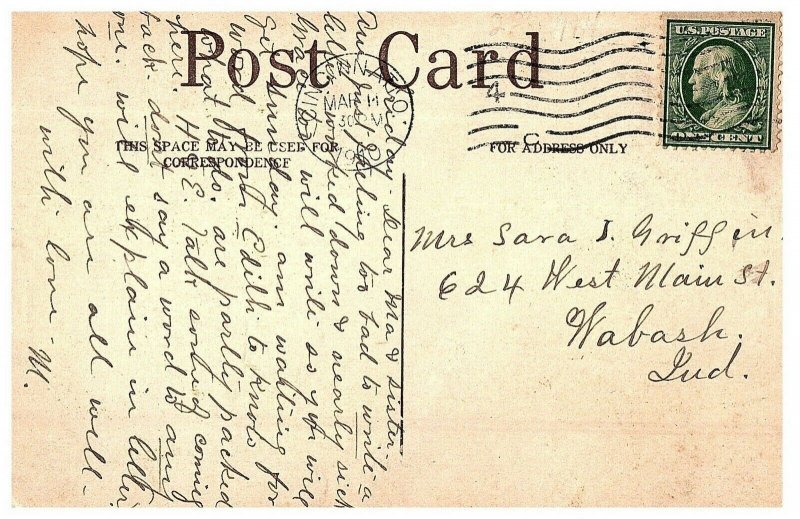 Post Card
THIS SPACE MAY BE USED FOR
CORRESPONDENCE
FOR ADDRESS ONLY
U.S. POSTAGE
ONE CENT
MAR 11
30 PM
4
C
Mrs Sara J. Griffin.
624 West Main St.
Wabash.
Ind.
Friday. Dear Ma & Sister
Am just feeling too bad to write a
letter worked down & nearly sick
Grace will write so you will
get Sunday. am waiting for
word from Edith to know
what to do. are partly packed
here. H & E. Talk some of coming
back don't say a word to any
one. will explain in letter
hope you are all well -
with love - M.